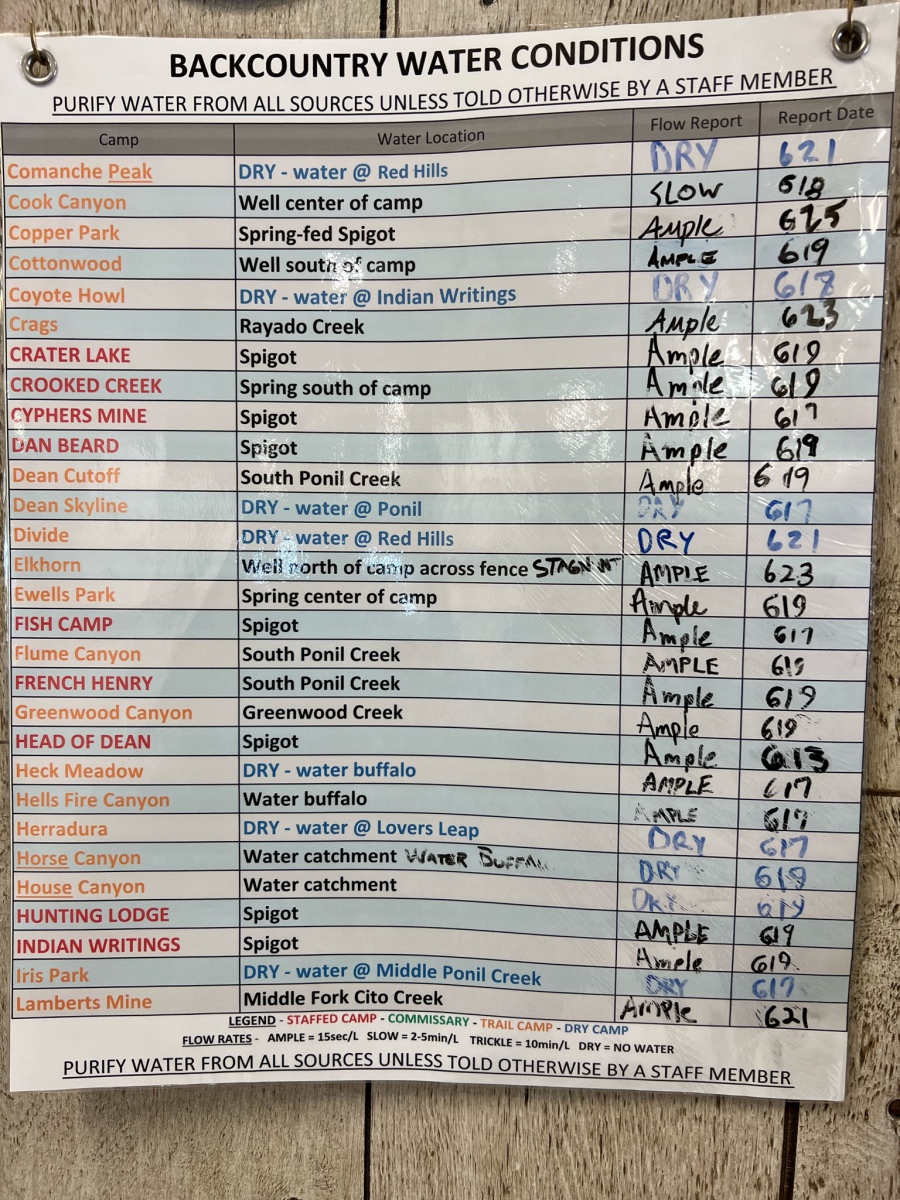 BACKCOUNTRY WATER CONDITIONS
PURIFY WATER FROM ALL SOURCES UNLESS TOLD OTHERWISE BY A STAFF MEMBER
Camp Water Location Flow Report Report Date
Comanche Peak DRY - water @ Red Hills DRY 621
Cook Canyon Well center of camp SLOW 618
Copper Park Spring-fed Spigot Ample 625
Cottonwood Well south of camp AMPLE 619
Coyote Howl DRY - water @ Indian Writings DRY 617
Crags Rayado Creek Ample 623
CRATER LAKE Spigot Ample 619
CROOKED CREEK Spring south of camp Ample 619
CYPHERS MINE Spigot Ample 617
DAN BEARD Spigot Ample 619
Dean Cutoff South Ponil Creek Ample 619
Dean Skyline DRY - water @ Ponil DRY 617
Divide DRY - water @ Red Hills DRY 621
Elkhorn Well north of camp across fence AMPLE 623
Ewells Park Spring center of camp Ample 619
FISH CAMP Spigot Ample 617
Flume Canyon South Ponil Creek AMPLE 619
FRENCH HENRY South Ponil Creek Ample 619
Greenwood Canyon Greenwood Creek Ample 619
HEAD OF DEAN Spigot Ample 613
Heck Meadow DRY - water buffalo AMPLE 617
Hells Fire Canyon Water buffalo AMPLE 617
Herradura DRY - water @ Lovers Leap DRY 617
Horse Canyon Water catchment WATER DRY 619
House Canyon Water catchment DRY 619
HUNTING LODGE Spigot AMPLE 619
INDIAN WRITINGS Spigot Ample 619
Iris Park DRY - water @ Middle Ponil Creek DRY 617
Lamberts Mine Middle Fork Cito Creek Ample 621
LEGEND - STAFFED CAMP - COMMISSARY - TRAIL CAMP - DRY CAMP
FLOW RATES - AMPLE = 15sec/L SLOW = 2-5min/L TRICKLE = 10min/L DRY = NO WATER
PURIFY WATER FROM ALL SOURCES UNLESS TOLD OTHERWISE BY A STAFF MEMBER